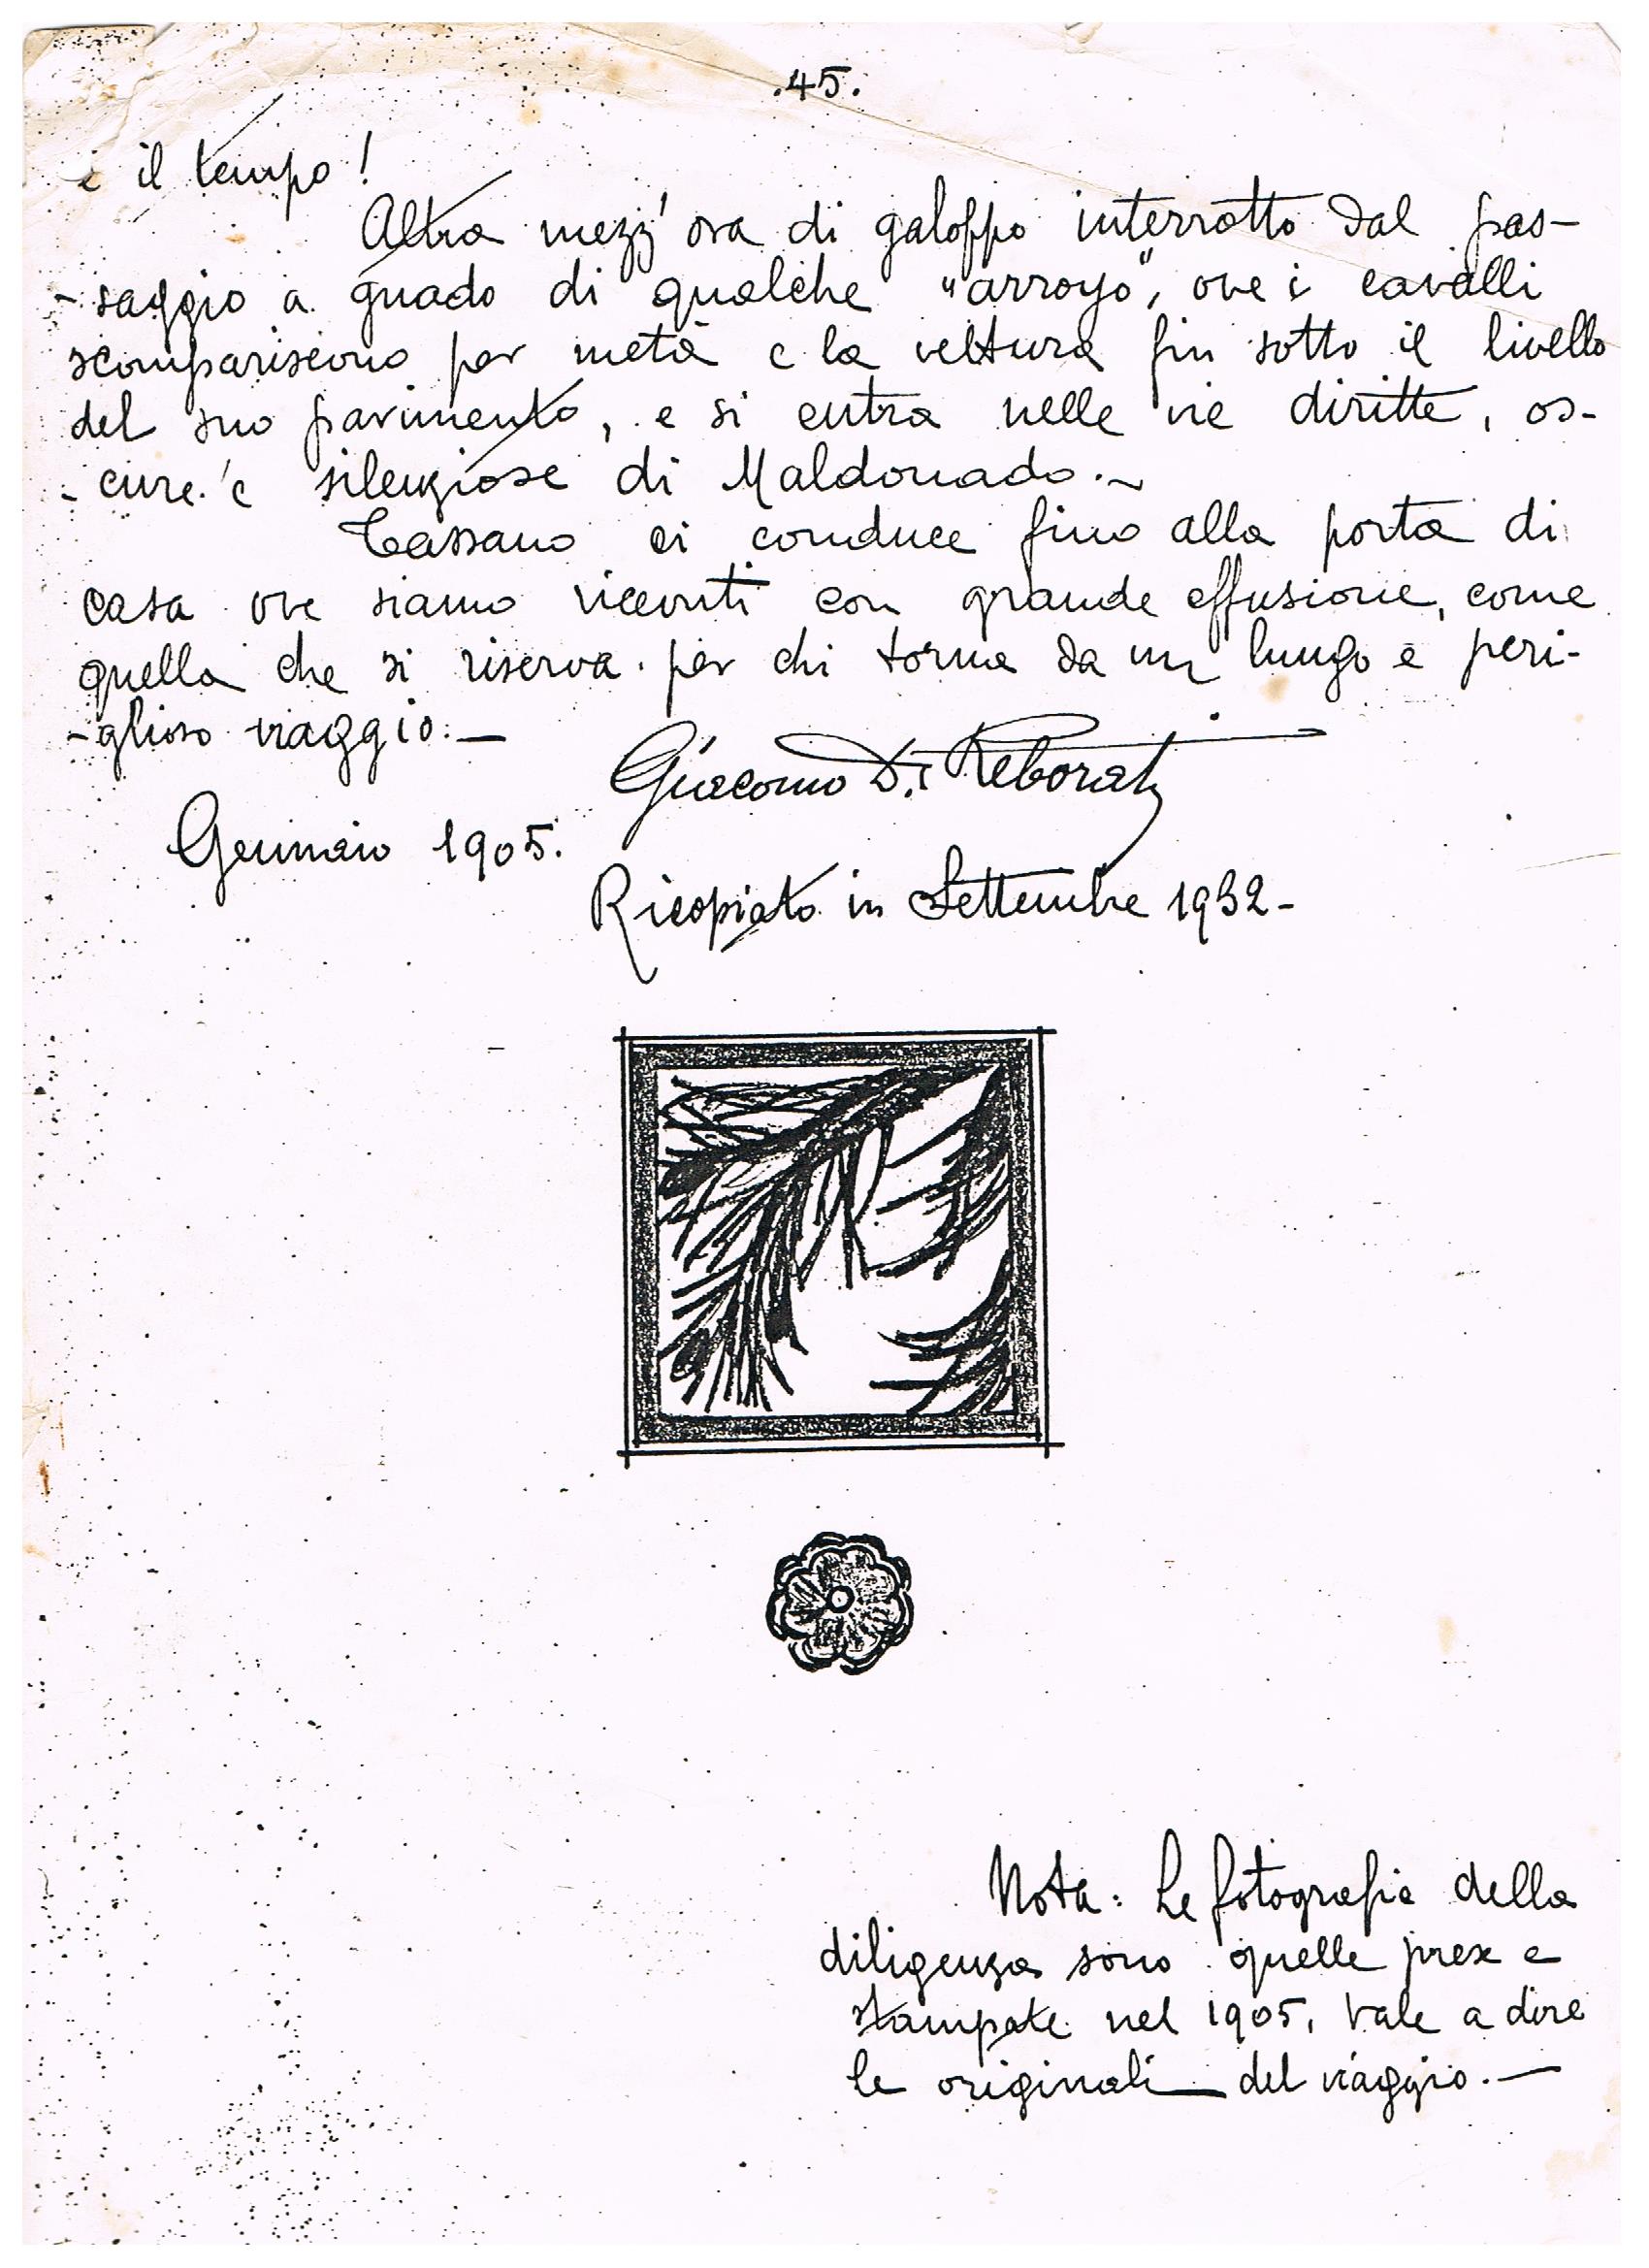 .45.
e il tempo!
Altra mezz'ora di galoppo interrotto dal pas-
-saggio a guado di qualche "arroyo", ove i cavalli
scompariscono per metà e la vettura fin sotto il livello
del suo pavimento, e si entra nelle vie diritte, os-
-cure e silenziose di Maldonado.~
Cassano ci conduce fino alla porta di
casa ove siamo ricevuti con grande effusione, come
quella che si riserva per chi torna da un lungo e peri-
-glioso viaggio.—
Giacomo D. Reborati
Gennaio 1905.
Ricopiato in Settembre 1932-
Nota: Le fotografie della
diligenza sono quelle prese e
stampate nel 1905, vale a dire
le originali del viaggio.—